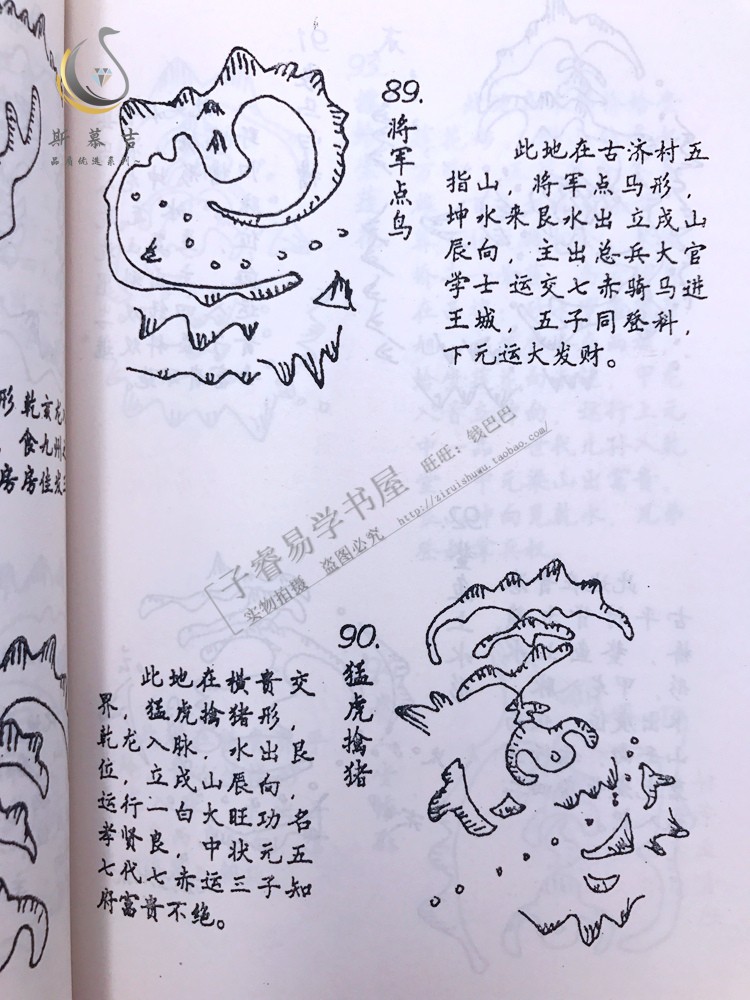 斯慕吉
品质优选系列~
89.
将军点鸟
此地在古济村五
指山，将军点马形，
坤水来艮水出立戌山
辰向，主出总兵大官
学士运交七赤骑马进
王城，五子同登科，
下元运大发财。
形乾亥龙
，食九州
房房佳发
子睿易学书屋 旺旺：钱巴巴
实物拍摄 盗图必究 http://ziruishuwu.taobao.com/
90.
猛虎擒猪
此地在横贵交
界，猛虎擒猪形，
乾龙入脉，水出艮
位，立戌山辰向，
运行一白大旺功名
孝贤良，中状元五
七代七赤运三子知
府富贵不绝。